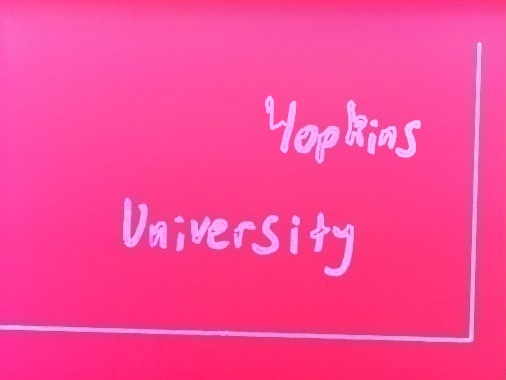 Hopkins
University